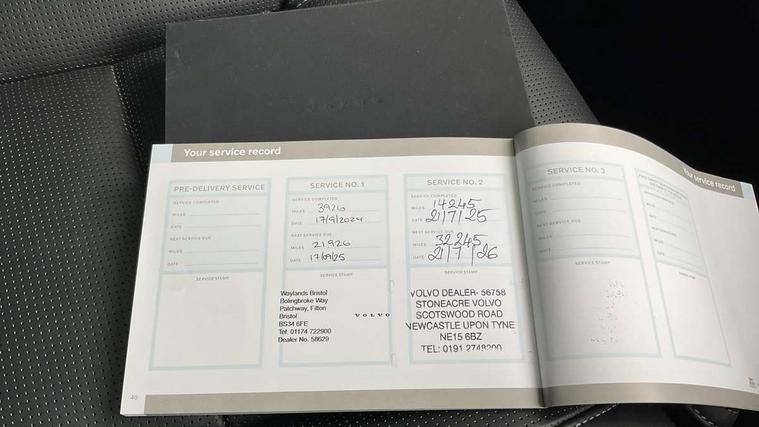 Your service record
PRE-DELIVERY SERVICE
SERVICE COMPLETED
MILES
DATE
NEXT SERVICE DUE
MILES
DATE
SERVICE STAMP
SERVICE NO. 1
SERVICE COMPLETED
MILES 3926
DATE 17/9/2024
NEXT SERVICE DUE
MILES 21,926
DATE 17/09/25
SERVICE STAMP
Waylands Bristol
Bolingbroke Way
Patchway, Filton
Bristol
BS34 6FE
Tel: 01174 722900
Dealer No. 58629
VOLVO
SERVICE NO. 2
SERVICE COMPLETED
MILES 14245
DATE 21/7/25
NEXT SERVICE DUE
MILES 32245
DATE 21/7/26
SERVICE STAMP
VOLVO DEALER- 56758
STONEACRE VOLVO
SCOTSWOOD ROAD
NEWCASTLE UPON TYNE
NE15 6BZ
TEL: 0191 2748200
40
SERVICE NO. 3
SERVICE COMPLETED
MILES
DATE
NEXT SERVICE DUE
MILES
DATE
SERVICE STAMP
Your service record
MILES
DATE
NEXT SERVICE DUE
MILES
DATE
SERVICE STAMP